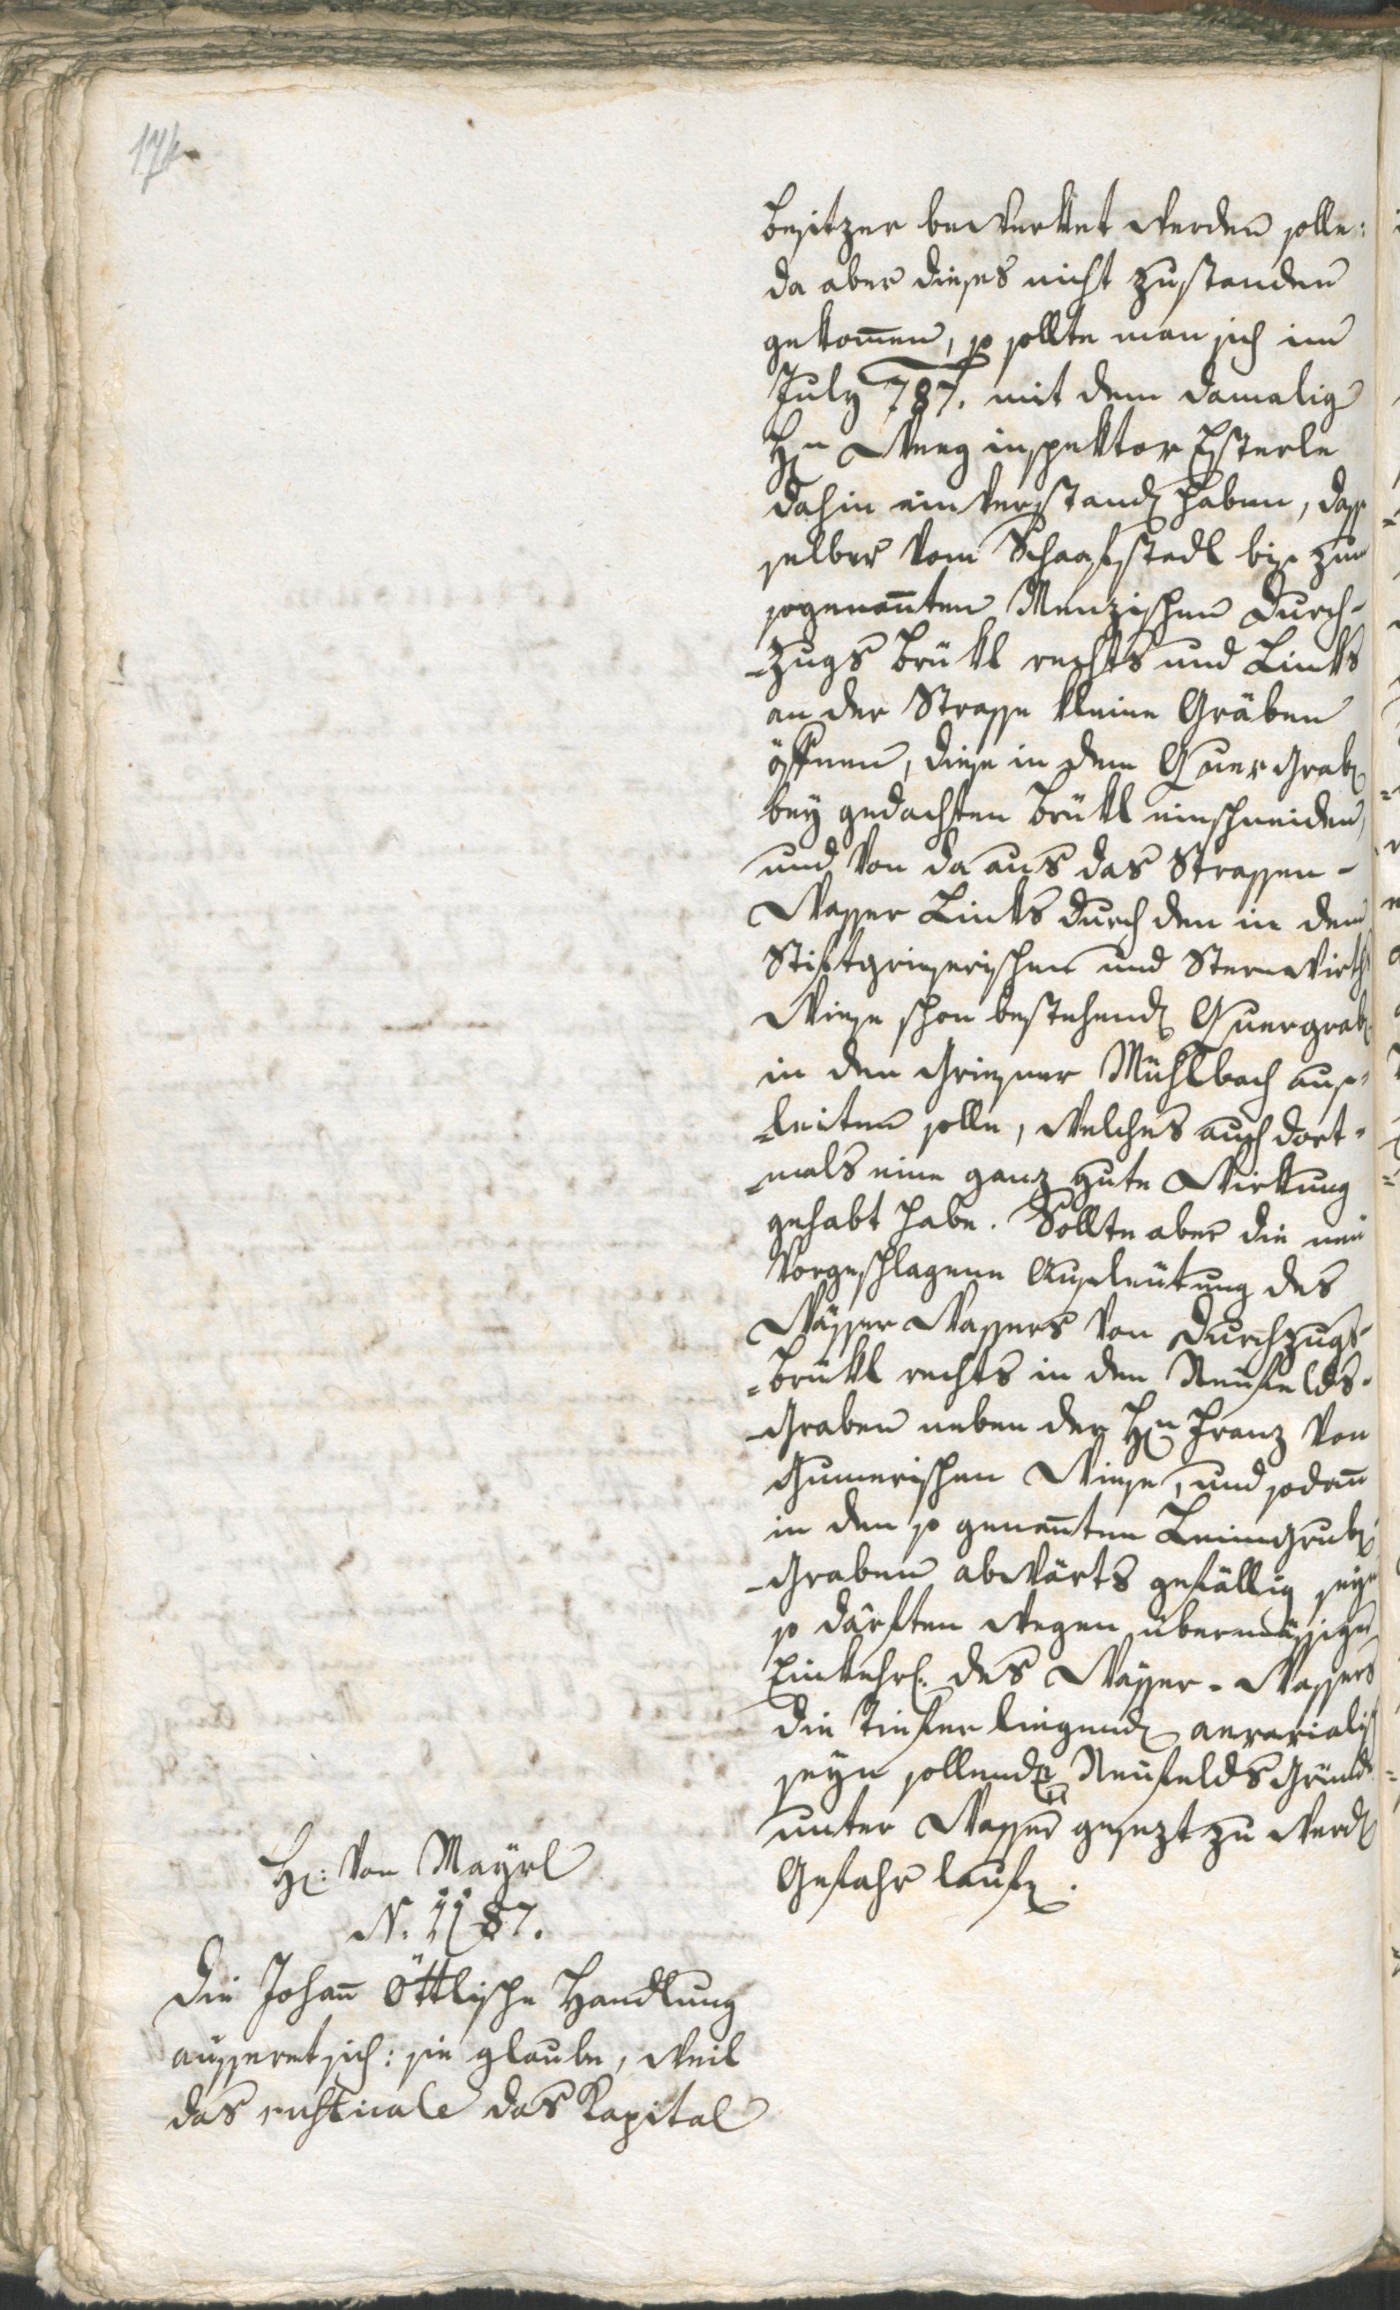 174
Besitzer bewerket werden solle:
da aber dieses nicht zustanden
gekom̄en, so sollte man sich im
July 787. mit dem damalig
Hn Weeg inspektor Esterle
dahin einverstand haben, dass
selber vom Schaafstadl bis zum
sogenan̄ten Menzischen Durch-
-zugs Brükl rechts und Links
an der Strasse kleine Gräben
öffnen, diese in dem Quer Grab
bey gedachten Brükl einschneiden,
und von da aus das Strassen-
Wasser Links durch den in dem
Stiftgriesserischen und Sternwirths
Wiese schon bestehend Quergrab
in den Griesner Mühlbach aus-
-leiten solle, welches auch dort-
-mals eine ganz gute Wirkung
gehabt habe. Sollte aber die neü
vorgeschlagene Ausleütung des
Wässer Wassers von Durchzugs-
-brükl rechts in den Neüfelds-
-Graben neben der Hn Franz von
Gumerischen Wiese, und sodan̄
in den so genan̄ten Leimgrub
-Graben abwärts gefällig seyn
so därften wegen übermässigen
Einkehr des Wässer-Wassers
die Tiefer liegend aerarialisch
seyn sollend Neüfelds Gründe
unter Wasser gesezt zu werd
Gefahr lauf.
H: von Mayrl
N. 1187.
Die Johan̄ Öttlische Handlung
äusseret sich: sie glaube, weil
das rusticale das Kapital